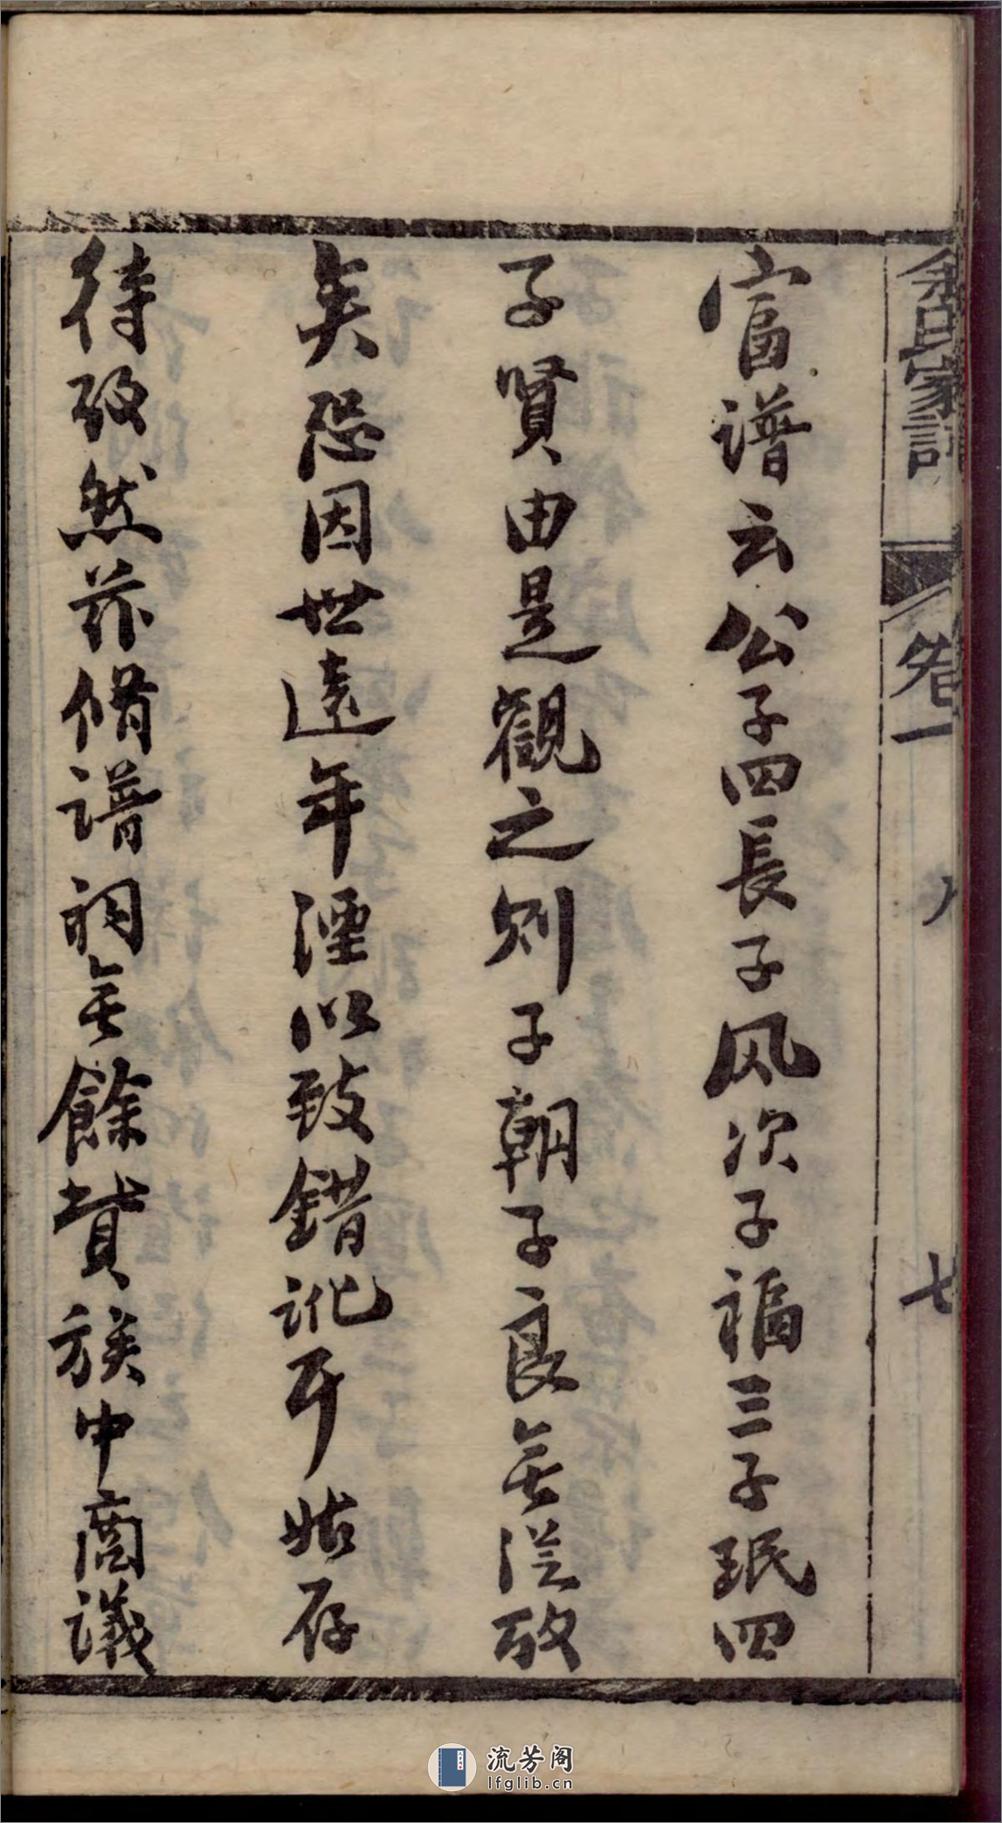 余氏家譜 卷一 八 七
富譜云公子四長子风次子福三子珉四
子賢由是觀之则子朝子良無從攷
矣恐因世遠年湮以致錯訛耳姑存
待攷然兹脩譜祠無餘貲族中啇議
流芳阁
lfglib.cn